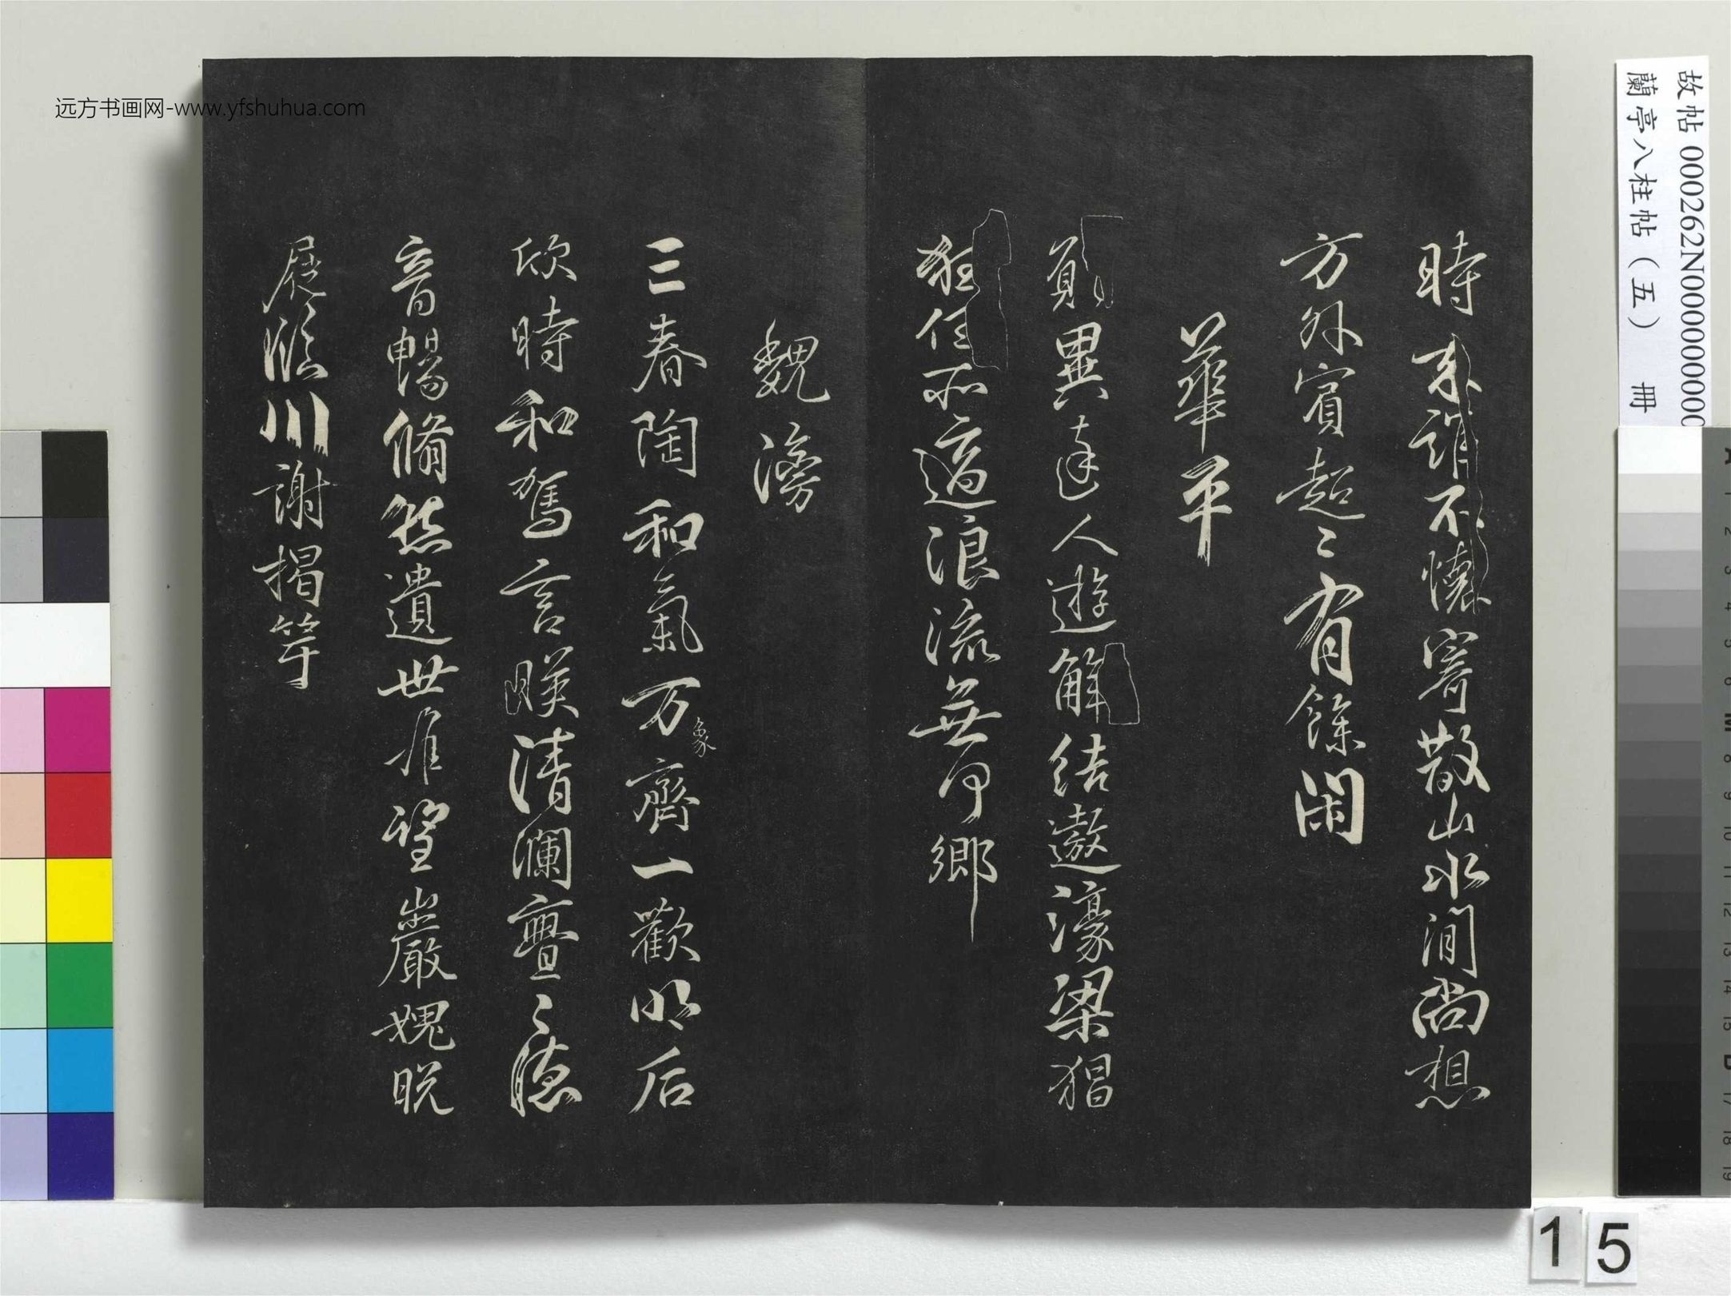 故帖 000262N000000000
蘭亭八柱帖（五） 冊
远方书画网-www.yfshuhua.com
時來誰不懷寄散山水間尚想
方外賓超〻有餘閑
華平
異達人遊解結遨濠梁猖
狂任所適浪流無何鄉
魏滂
三春陶和氣万象齊一歡明后
欣時和駕言暎清瀾亹〻德
音暢脩然遺世難望巖愧脫
屣臨川謝揭竿
15